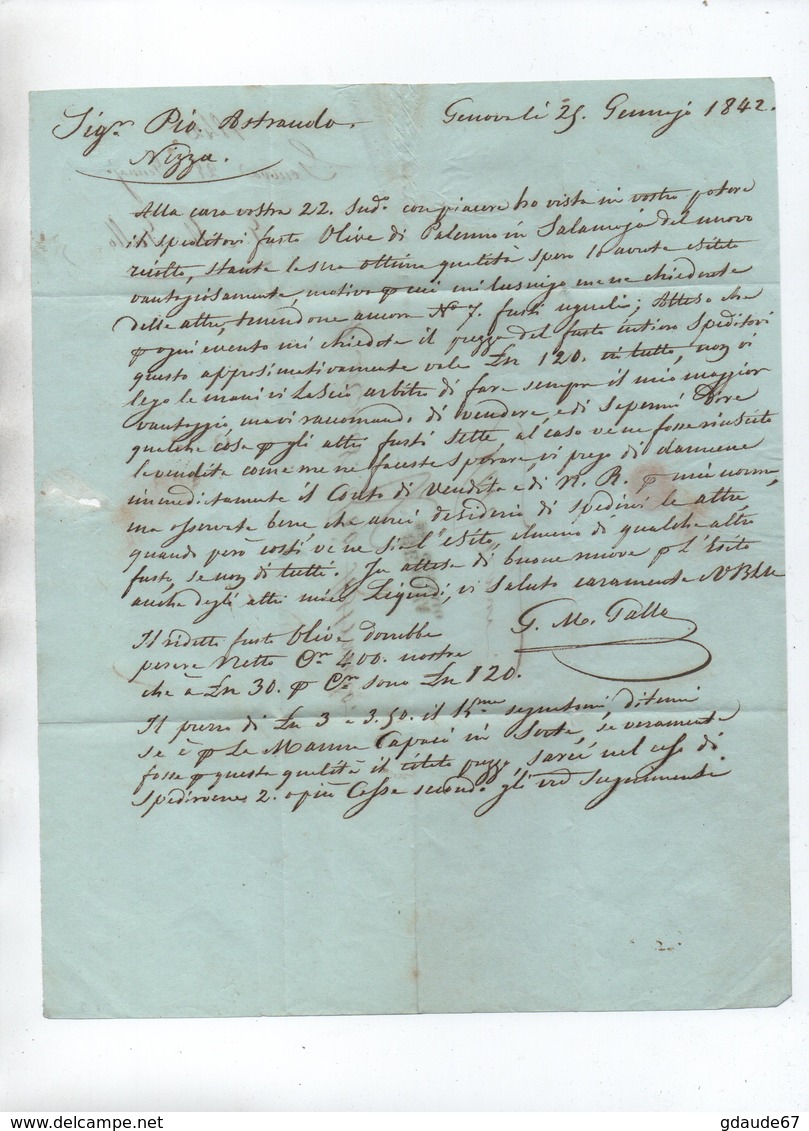 Genova li 25 Gennajo 1842.
Sigr. Pio Astraudo.
Nizza.
Alla cara vostra 22. Sudo. con piacere ho vista in vostro potere
il speditovi fusto Olive di Palermo in Salamoja del nuovo
racolto, stante la sua ottima qualità spero lo avrete esitato
vantagiosamente, motivo p cui mi lusingo me ne chiederete
delle altre, tenendone ancora No 7. fusti uguali; Atteso che
p ogni evento mi chiedete il prezzo del fusto intiero speditovi
questo approssimativamente vale Ln 120. in tutto, non vi
lego le mani vi lascio arbitro di fare sempre il mio maggior
vantaggio, ma vi raccomando di vendere, e di sapermi dire
qualche cosa p gli altri fusti sette, al caso ve ne fosse riuscita
la vendita come me ne faceste sperare, vi prego di darmene
immediatamente il Conto di Vendita e di N. R. p mia norma,
ma osservate bene che avrei desiderio di spedirvi le altre,
quando però costì ve ne sia l'esito, almeno di qualche altro
fusto, se non di tutti. In attesa di buone nuove p l'Esito
anche degli altri miei Liquidi, vi saluto caramente
G. M. Gallo
Il ridetto fusto Olive dovrebbe
pesare Netto Cn 400. nostre
che à Ln 30. p Cn sono Ln 120.
Il prezzo di Ln 3 a 3.50. il 15me segnatomi ditemi
se è p Le Manne Capaci in Sorte, se veramente
fosse p questa qualità il citato prezzo, sarei nel caso di
spedirvene 2. o più Casse secondo gli
gdaude67